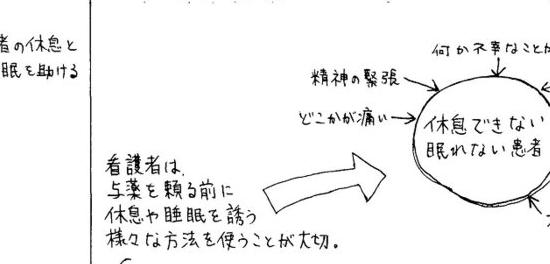 者の休息と
眠を助ける
何か不幸なことが
精神の緊張
どこかが痛い
休息できない
眠れない患者
看護者は、
与薬を頼る前に
休息や睡眠を誘う
様々な方法を使うことが大切。